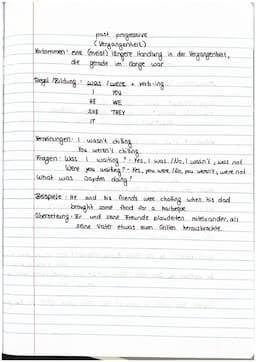 past progressive
(Vergangenheit)
Vorkommen: eine (meist) längere Handlung in der Vergangenheit,
die gerade im Gange war
Regel/Bildung: was / were + verb-ing
I YOU
HE WE
SHE THEY
IT
Verneinungen: I wasn't chilling.
You weren't chilling.
Fragen: Was I waiting? - Yes, I was. /No, I wasn't, was not
Were you waiting? - Yes, you were. /No, you weren't, were not
What was doing?
Beispiele: He and his friends were chatting when his dad
brought some food for a barbeque.
Übersetzung: Er und seine Freunde plauderten miteinander, als
seine Vater etwas zum Grillen herausbrachte.